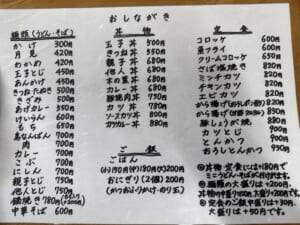 おしながき
麺類(うどん・そば)
かけ 300円
月見 420円
わかめ 420円
玉子とじ 450円
あんかけ 450円
カレー
きざみ
けいらん 600円
もち 650円
鳥なんばん 700円
肉 700円
カレー 700円
こぶ 700円
にしん 700円
親子とじ 750円
他人とじ 750円
鍋焼き 780円
中華そば 600円
丼物
玉子丼 500円
きつね丼 550円
親子丼 680円
他人丼 680円
木の葉丼 680円
カレー丼 680円
豚焼肉丼 750円
天丼 750円
カツ丼 780円
ソースカツ丼 830円
カツカレー丼 880円
ご飯
ごはん
(小)150円(中)180円(大)200円
おにぎり(2個) 200円
(かつおふりかけ・のり玉)
定食
コロッケ 600円
魚フライ 690円
クリームコロッケ 650円
さば塩焼き 820円
ミンチカツ 820円
チキンカツ 820円
エビカツ 820円
から揚げ
から揚げ
豚しょうが焼 850円
カツとじ 900円
とんかつ 900円
おろしとんかつ 950円
丼物、定食には+180円で
ミニうどん・そばが付けれます。
麺類の大盛りは+200円、
定食のご飯中盛り+30円、
大盛りは+50円です。